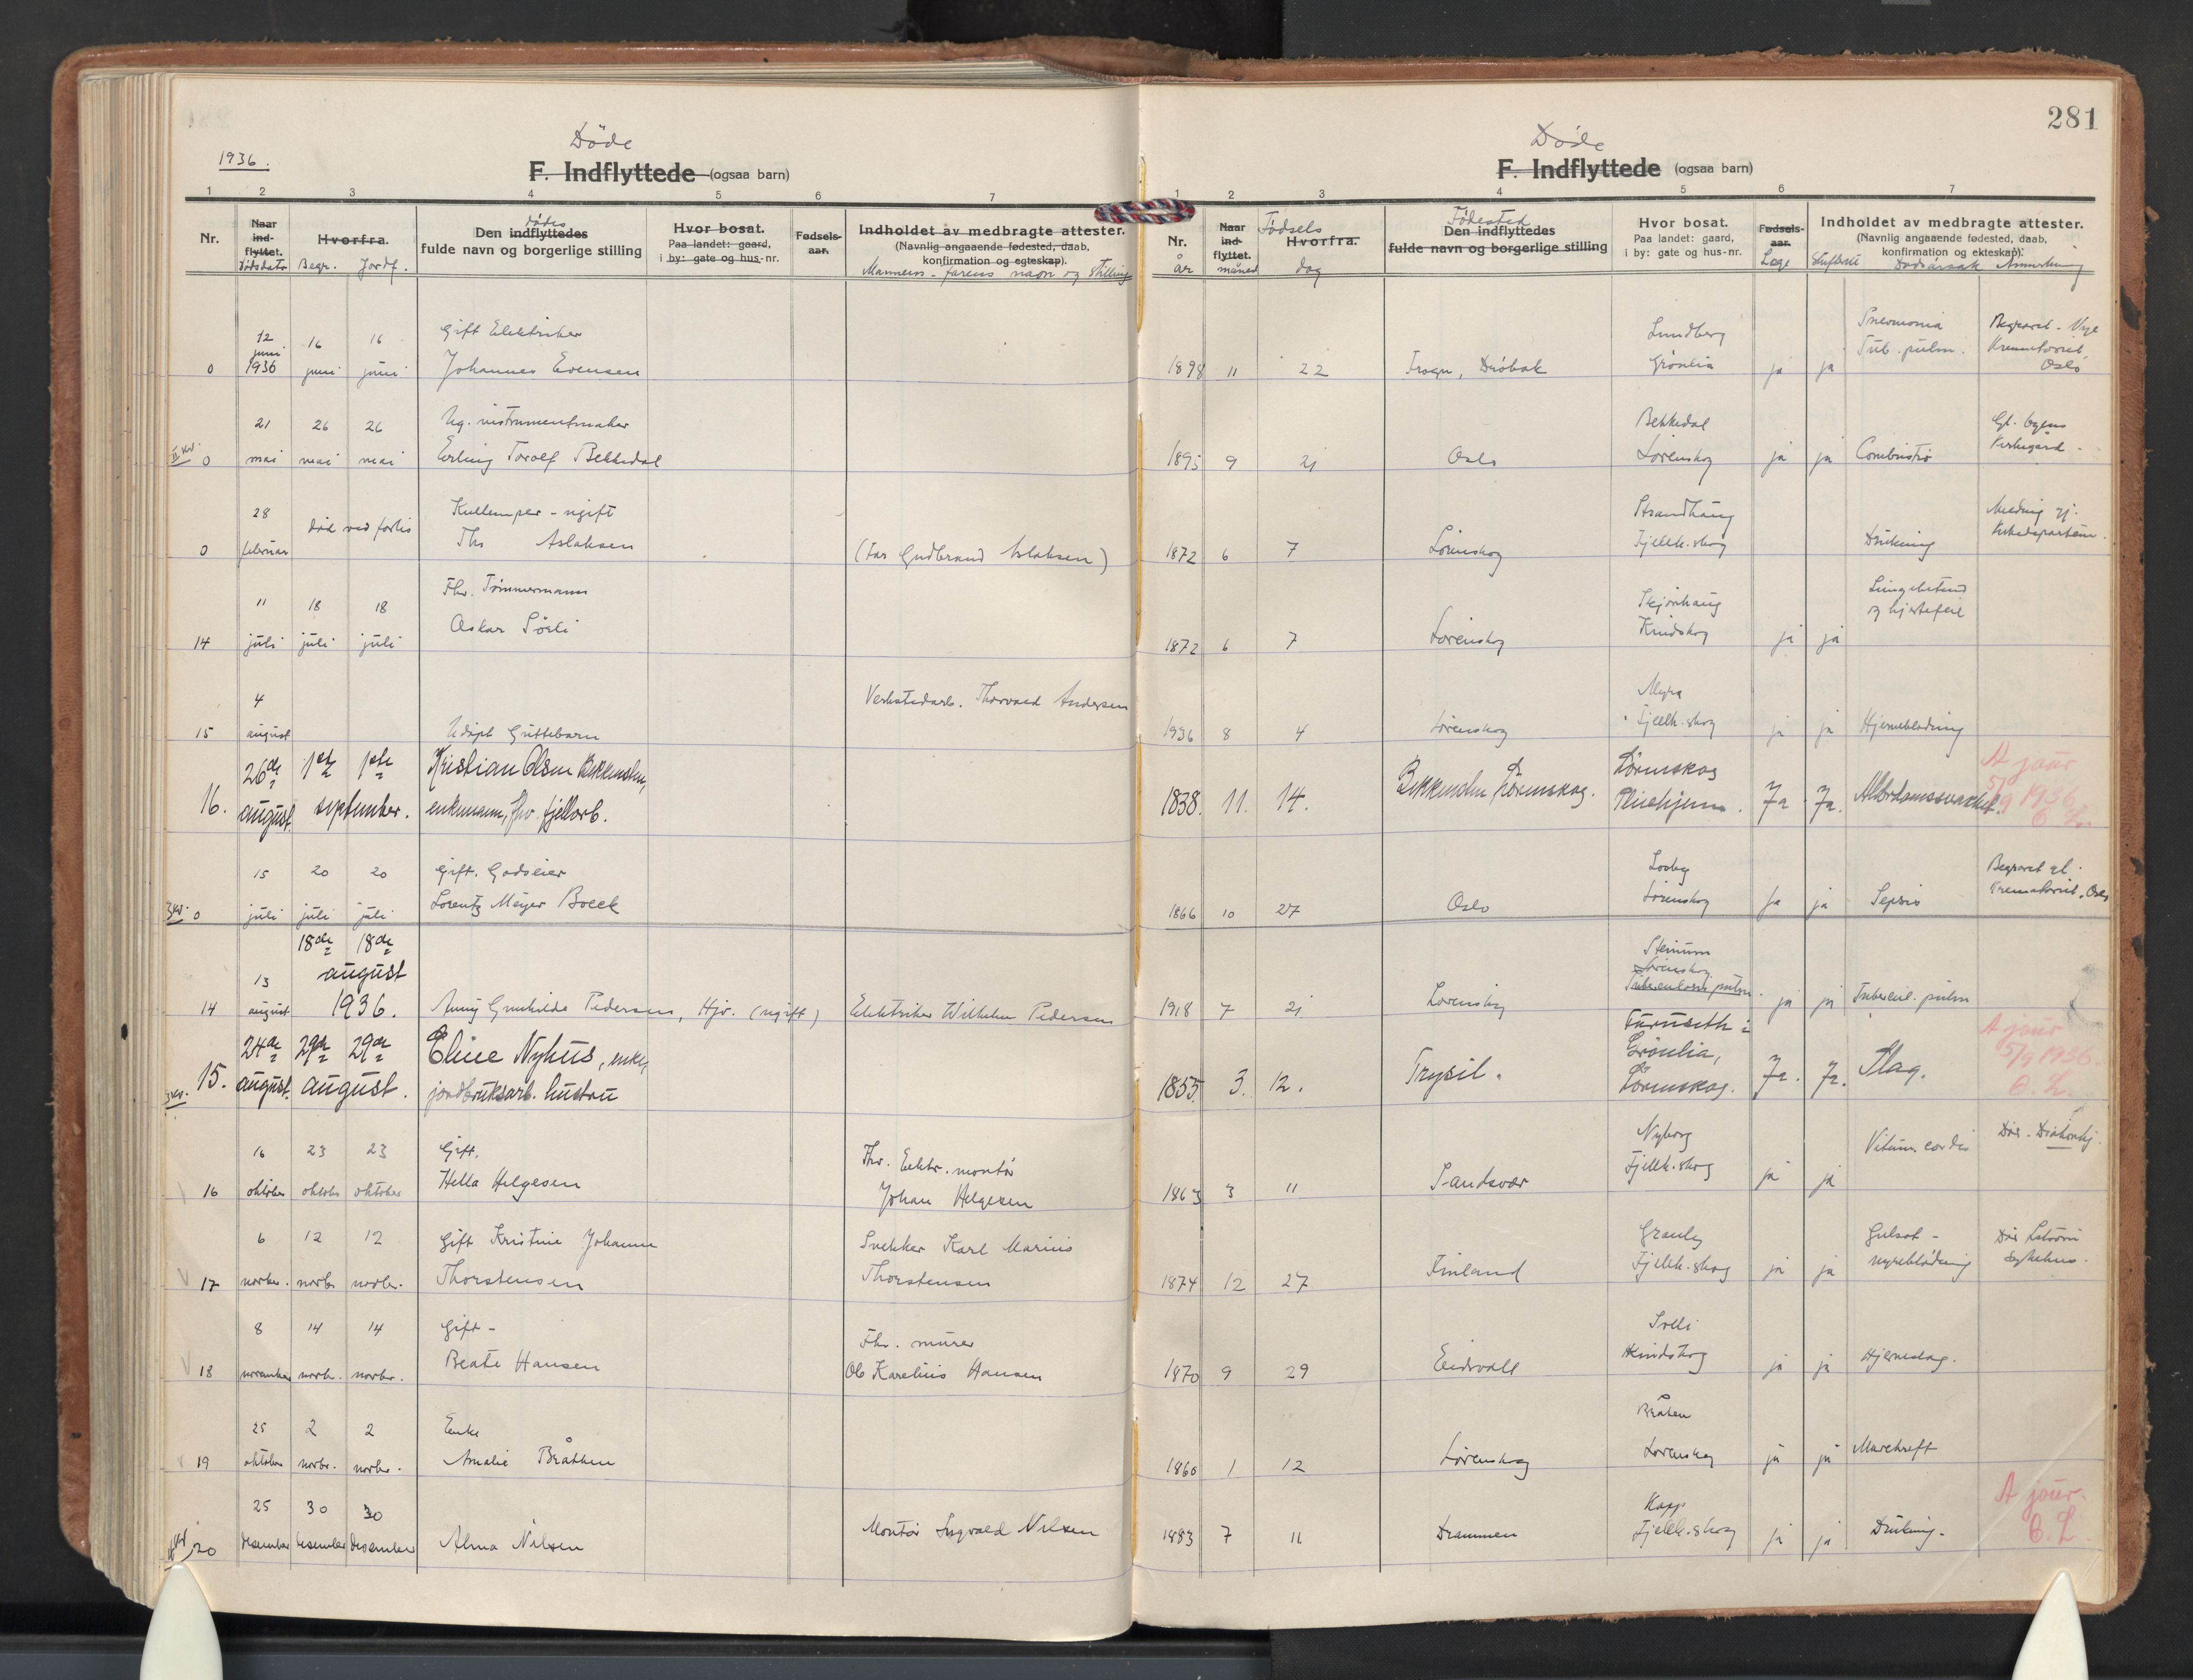 281
1936.
Døde
F. Indflyttede (ogsaa barn)
1 2 3 4 5 6 7
Nr.
Naar ind-flyttet.
Dødsdato
Hvorfra.
Begr. Jordf.
Den indflyttedes
dødes
fulde navn og borgerlige stilling
Hvor bosat.
Paa landet: gaard,
i by: gate og hus-nr.
Fødsels-aar.
Indholdet av medbragte attester.
(Navnlig angaaende fødested, daab,
konfirmation og egteskap).
Mannens - farens navn og stilling
Døde
F. Indflyttede (ogsaa barn)
1 2 3 4 5 6 7
Nr.
år
Naar ind-flyttet.
måned
Fødsels
Hvorfra.
dag
Fødested
Den indflyttedes
fulde navn og borgerlige stilling
Hvor bosat.
Paa landet: gaard,
i by: gate og hus-nr.
Fødsels-aar.
Læge
Skifterett
Indholdet av medbragte attester.
(Navnlig angaaende fødested, daab,
konfirmation og ekteskap).
Dødsårsak Anmerkning
0 12 juni 1936 16 juni 16 juni
Gift Elektriker
Johannes Evensen
1898 11 22 Frogn, Drøbak
Lundberg
Grønlia
ja ja
Pneumonia
Tub. pulm.
Begravet - Nye
Krematoriet,
Oslo
0 21 mai 26 mai 26 mai
Ug. instrumentmaker
Erling Torolf Bekkedal
1895 9 21 Oslo
Bekkedal
Lørenskog
ja ja
Combustio
Gl. byens
Kirkegård.
0 28 februar død ved forlis
ugift
Ths Aslaksen
(Far Gudbrand Aslaksen)
1872 6 7 Lørenskog
Strandhaug
Fjellh.skog
Drukning
Melding
14 11 juli 18 juli 18 juli
Fhv. Tømmermann
Oskar Sørli
1872 6 7 Lørenskog
Skjønhaug
ja ja
Lungebetend
og hjertefeil
15 4 august
Udøpt Guttebarn
Verkstedarb. Thorvald Andersen
1936 8 4 Lørenskog
Myra
Fjellh.skog
ja ja
Hjerneblødning
16. 26de august. 1ste 1ste september.
Kristian Olsen Bekkensten,
enkemann, fhv. fjellarb.
1838. 11. 14. Lørenskog.
Lørenskog
Pleiehjem.
Ja Ja.
Alderdomssvakhet.
A jour
5/9 1936
3kv. 0 15 juli 20 juli 20 juli
Gift. Godseier
Lorentz Meyer Boeck
1866 10 27 Oslo
Losby
Lørenskog
ja ja
Sepsis
Begravet gl.
Krematoriet, Oslo
14 13 august 18de 18de
august
1936.
Anny Gunhilda Pedersen, Hjv. (ugift)
Elektriker Wilhelm Pedersen
1918 7 21 Lørenskog
Steinum
Lørenskog
Tuberculosis pulm.
ja ja
Tubercul. pulm
3kv. 15. 24de august. 29de 29de august.
Eline Nyhus, enke,
jordbruksarb. hustru
1855. 3. 12. Trysil.
Furuseth i
Grønlia,
Lørenskog.
Ja. Ja.
Slag.
A jour
5/9 1936.
16 16 oktober 23 oktober 23 oktober
Gift.
Hella Helgesen
Fhv. Elektr. montør
Johan Helgesen
1863 3 11 Sandsvær
Nyborg
Fjellh.skog
ja ja
Vitium cordis
Død. Diakonhj.
17 6 novbr. 12 novbr. 12 novbr.
Gift Kristine Johanne
Thorstensen
Snekker Karl Marius
Thorstensen
1874 12 27 Finland
Granly
Fjellh.skog
ja ja
Gulsot -
nyreblødning
Død Lstrøm
Sykehus.
18 8 november 14 novbr. 14 novbr.
Gift -
Beate Hansen
Fhv. murer
Ole Karelius Hansen
1870 9 29 Eidsvoll
ja ja
Hjerneslag.
19 25 oktober 2 novbr. 2 novbr.
Enke
Amalie Bråthen
1860 1 12 Lørenskog
Bråten
Lørenskog
ja ja
Marekreft
20 25 desember 30 desember 30 desember
Alma Nilsen
Montør Ingvald Nilsen
1883 7 11 Drammen
Kapp
Fjellh.skog
ja ja
Drukning.
A jour.